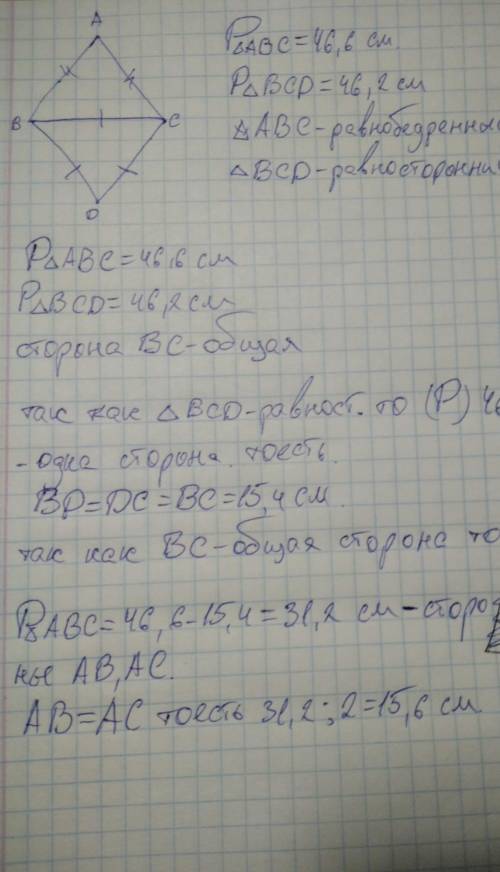 A
B
C
D
P△ABC=46,6 см
P△BCD=46,2 см
△ABC-равнобедренный
△BCD-равносторонни
P△ABC=46,6 см
P△BCD=46,2 см
сторона BC-общая
так как △BCD-равност. то (P) 46
-одна сторона. тоесть.
BD=DC=BC=15,4 см.
так как BC-общая сторона то
P△ABC=46,6-15,4=31,2 см-сторо
ны AB, AC.
AB=AC тоесть 31,2:2=15,6 см